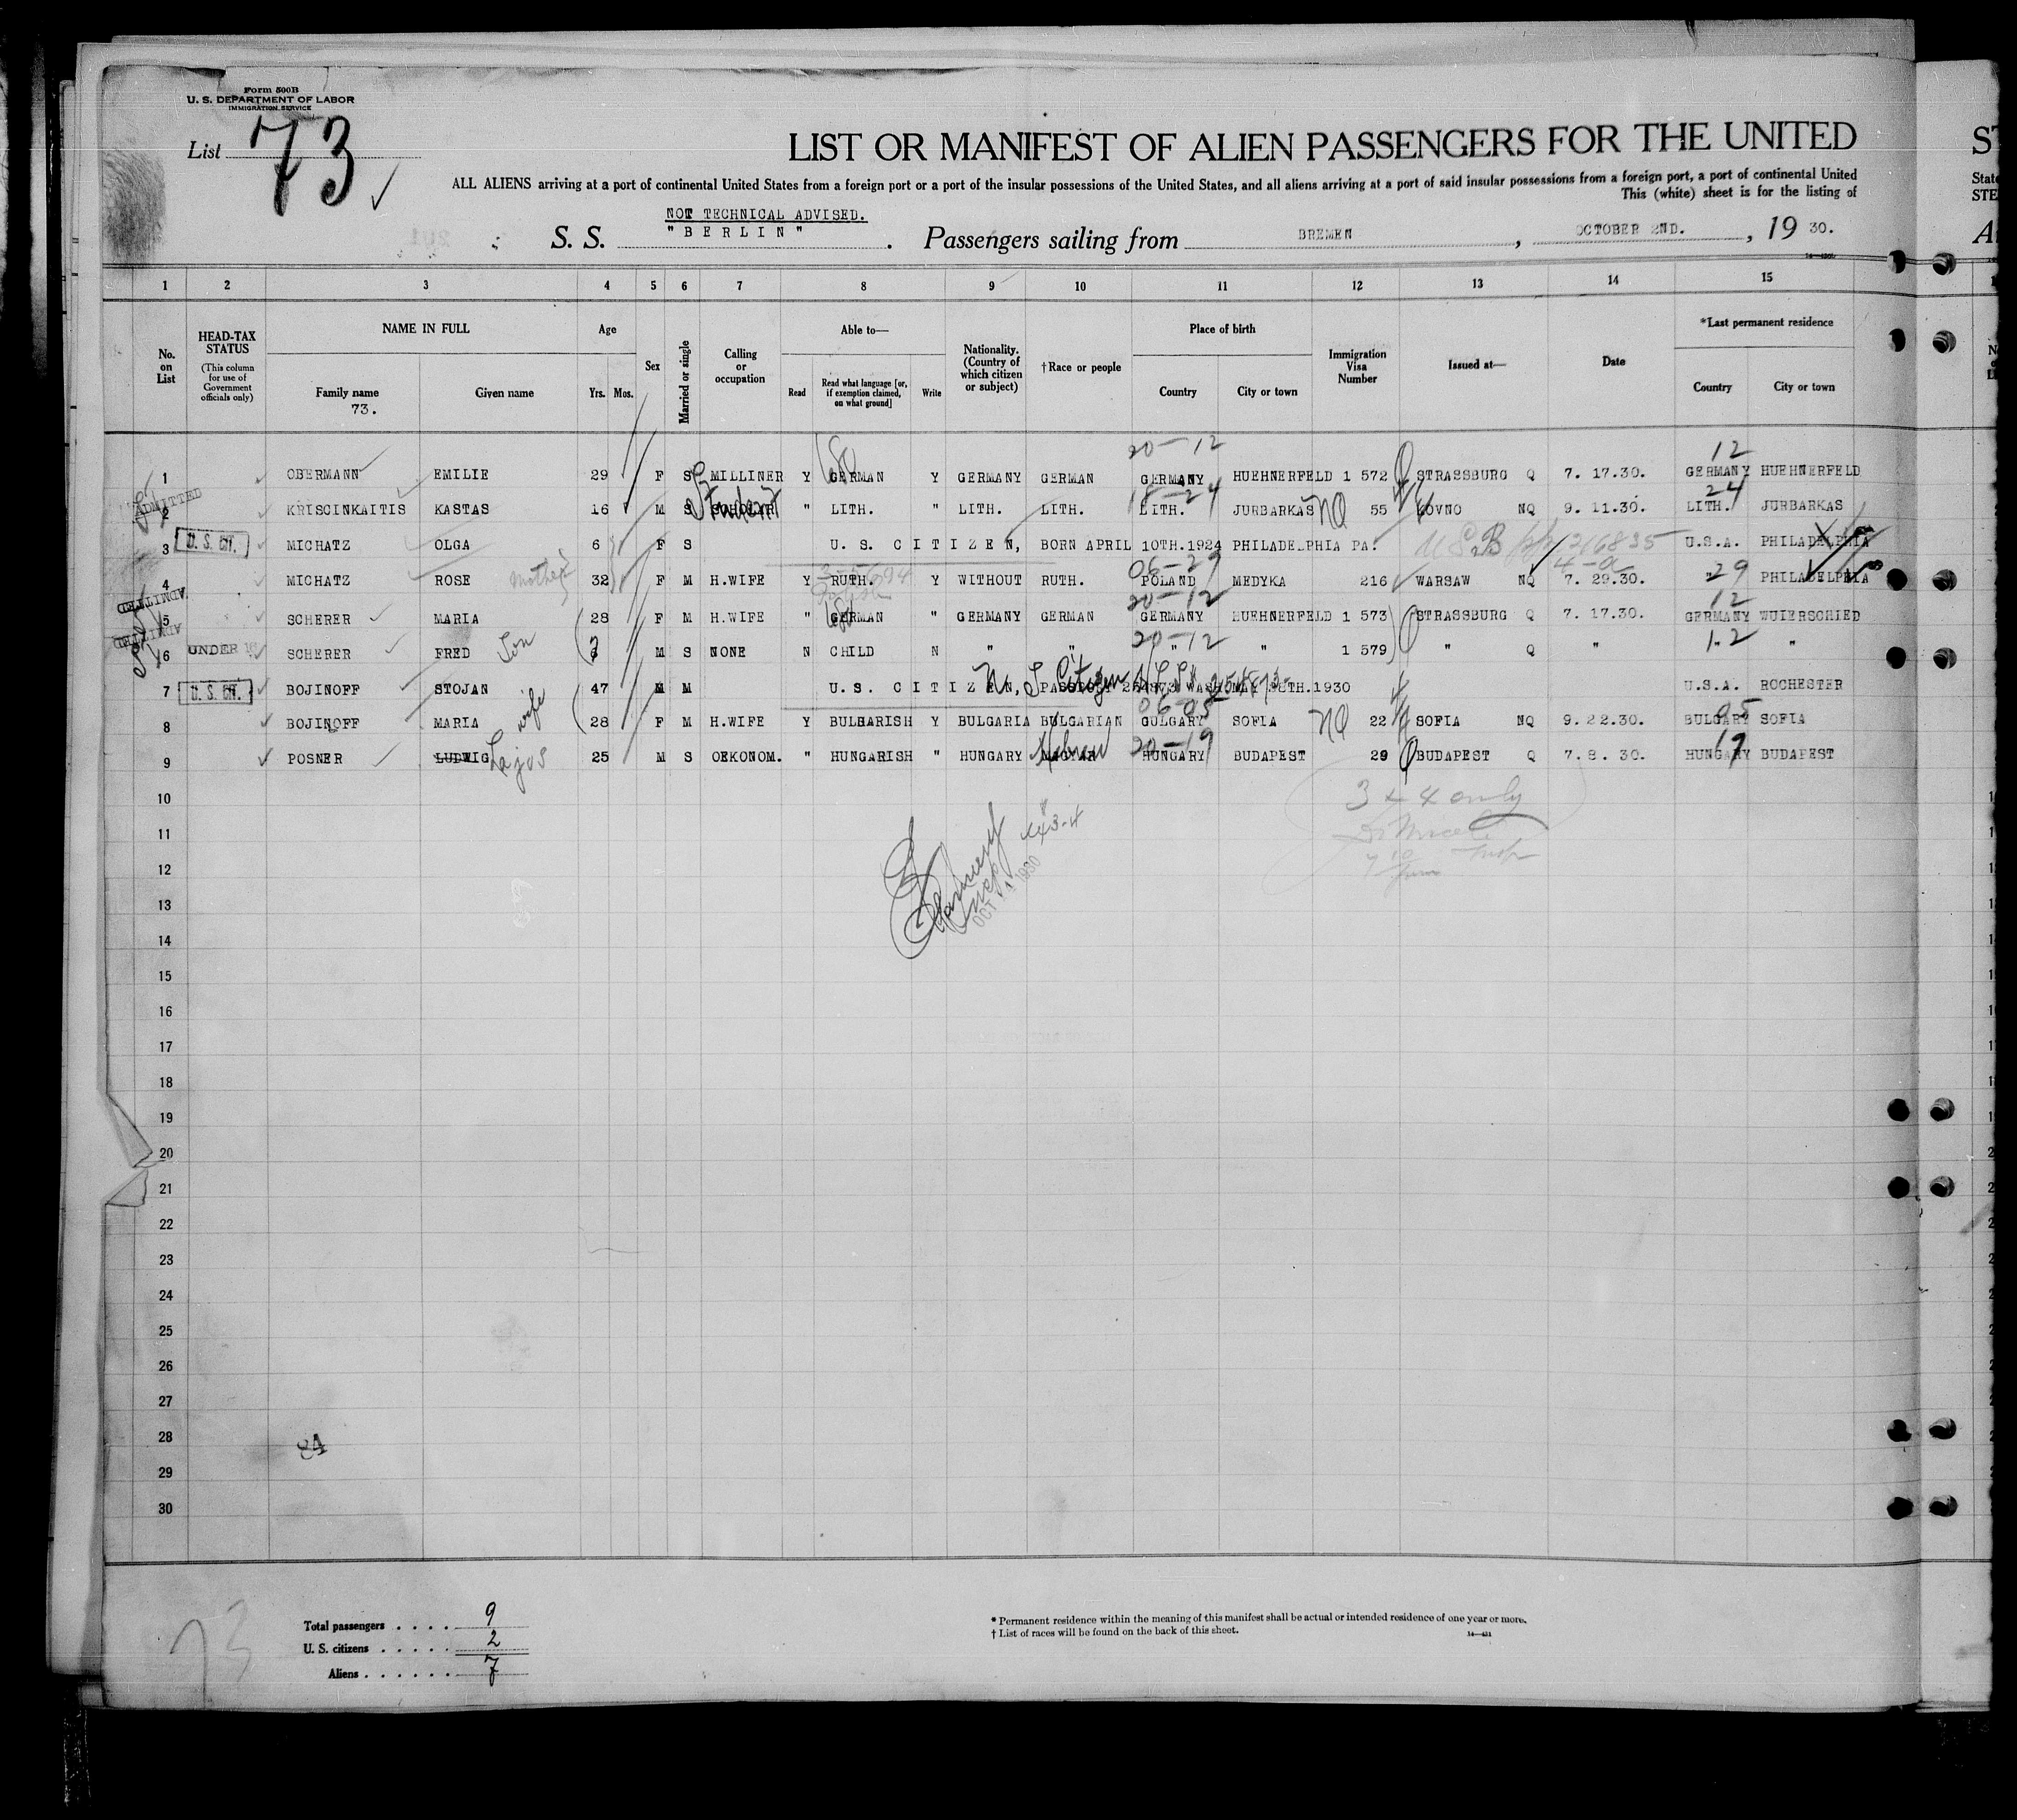 Form 500B
U. S. DEPARTMENT OF LABOR
IMMIGRATION SERVICE
List 73
LIST OR MANIFEST OF ALIEN PASSENGERS FOR THE UNITED
ALL ALIENS arriving at a port of continental United States from a foreign port or a port of the insular possessions of the United States, and all aliens arriving at a port of said insular possessions from a foreign port, a port of continental United
This (white) sheet is for the listing of
NOT TECHNICAL ADVISED.
S. S. "BERLIN". Passengers sailing from BREMEN, OCTOBER 2ND., 19 30.
1 2 3 4 5 6 7 8 9 10 11 12 13 14 15
No. on List
HEAD-TAX STATUS
(This column for use of Government officials only)
NAME IN FULL
Family name
73.
Given name
Age
Yrs. Mos.
Sex
Married or single
Calling or occupation
Able to—
Read
Read what language [or, if exemption claimed, on what ground]
Write
Nationality. (Country of which citizen or subject)
†Race or people
Place of birth
Country
City or town
Immigration Visa Number
Issued at—
Date
*Last permanent residence
Country
City or town
20-12 12
1 OBERMANN EMILIE 29 F S MILLINER Y GERMAN Y GERMANY GERMAN GERMANY HUEHNERFELD 1 572 STRASSBURG Q 7. 17.30. GERMANY HUEHNERFELD
18-24 24
ADMITTED
2 KRISCINKAITIS KASTAS 16 M S Student " LITH. " LITH. LITH. LITH. JURBARKAS NQ 55 KOVNO NQ 9. 11.30. LITH. JURBARKAS
3 U.S. MICHATZ OLGA 6 F S U. S. CITIZEN, BORN APRIL 10TH.1924 PHILADELPHIA PA. U.S.A. PHILADELPHIA
06-29
4 MICHATZ ROSE mother 32 F M H.WIFE Y RUTH. Y WITHOUT RUTH. POLAND MEDYKA 216 WARSAW NQ 7. 29.30. " 29 PHILADELPHIA
ADMITTED
20-12 12
5 SCHERER MARIA 28 F M H.WIFE " GERMAN " GERMANY GERMAN GERMANY HUEHNERFELD 1 573 STRASSBURG Q 7. 17.30. GERMANY WUIERSCHIED
ADMITTED
20-12 12
6 UNDER 16 SCHERER FRED Son 7 M S NONE N CHILD N " " " " 1 579 " Q " " "
7 U.S. BOJINOFF STOJAN 47 M M U. S. CITIZEN, U.S. Citizen WASH. MAY 28TH.1930 U.S.A. ROCHESTER
06-05 05
8 BOJINOFF MARIA wife 28 F M H.WIFE Y BULGARISH Y BULGARIA BULGARIAN GULGARY SOFIA NQ 22 SOFIA NQ 9.22.30. BULGARY SOFIA
20-19 19
9 POSNER LUDWIG Lajos 25 M S OEKONOM. " HUNGARISH " HUNGARY MAGYAR Hebrew HUNGARY BUDAPEST 29 BUDAPEST Q 7.8. 30. HUNGARY BUDAPEST
10
3 + 4 only
11
12
13
14
15
16
17
18
19
20
21
22
23
24
25
26
27
28 84
29
30
73
Total passengers . . . . 9
U. S. citizens . . . . . 2
Aliens . . . . . . 7
* Permanent residence within the meaning of this manifest shall be actual or intended residence of one year or more.
† List of races will be found on the back of this sheet.